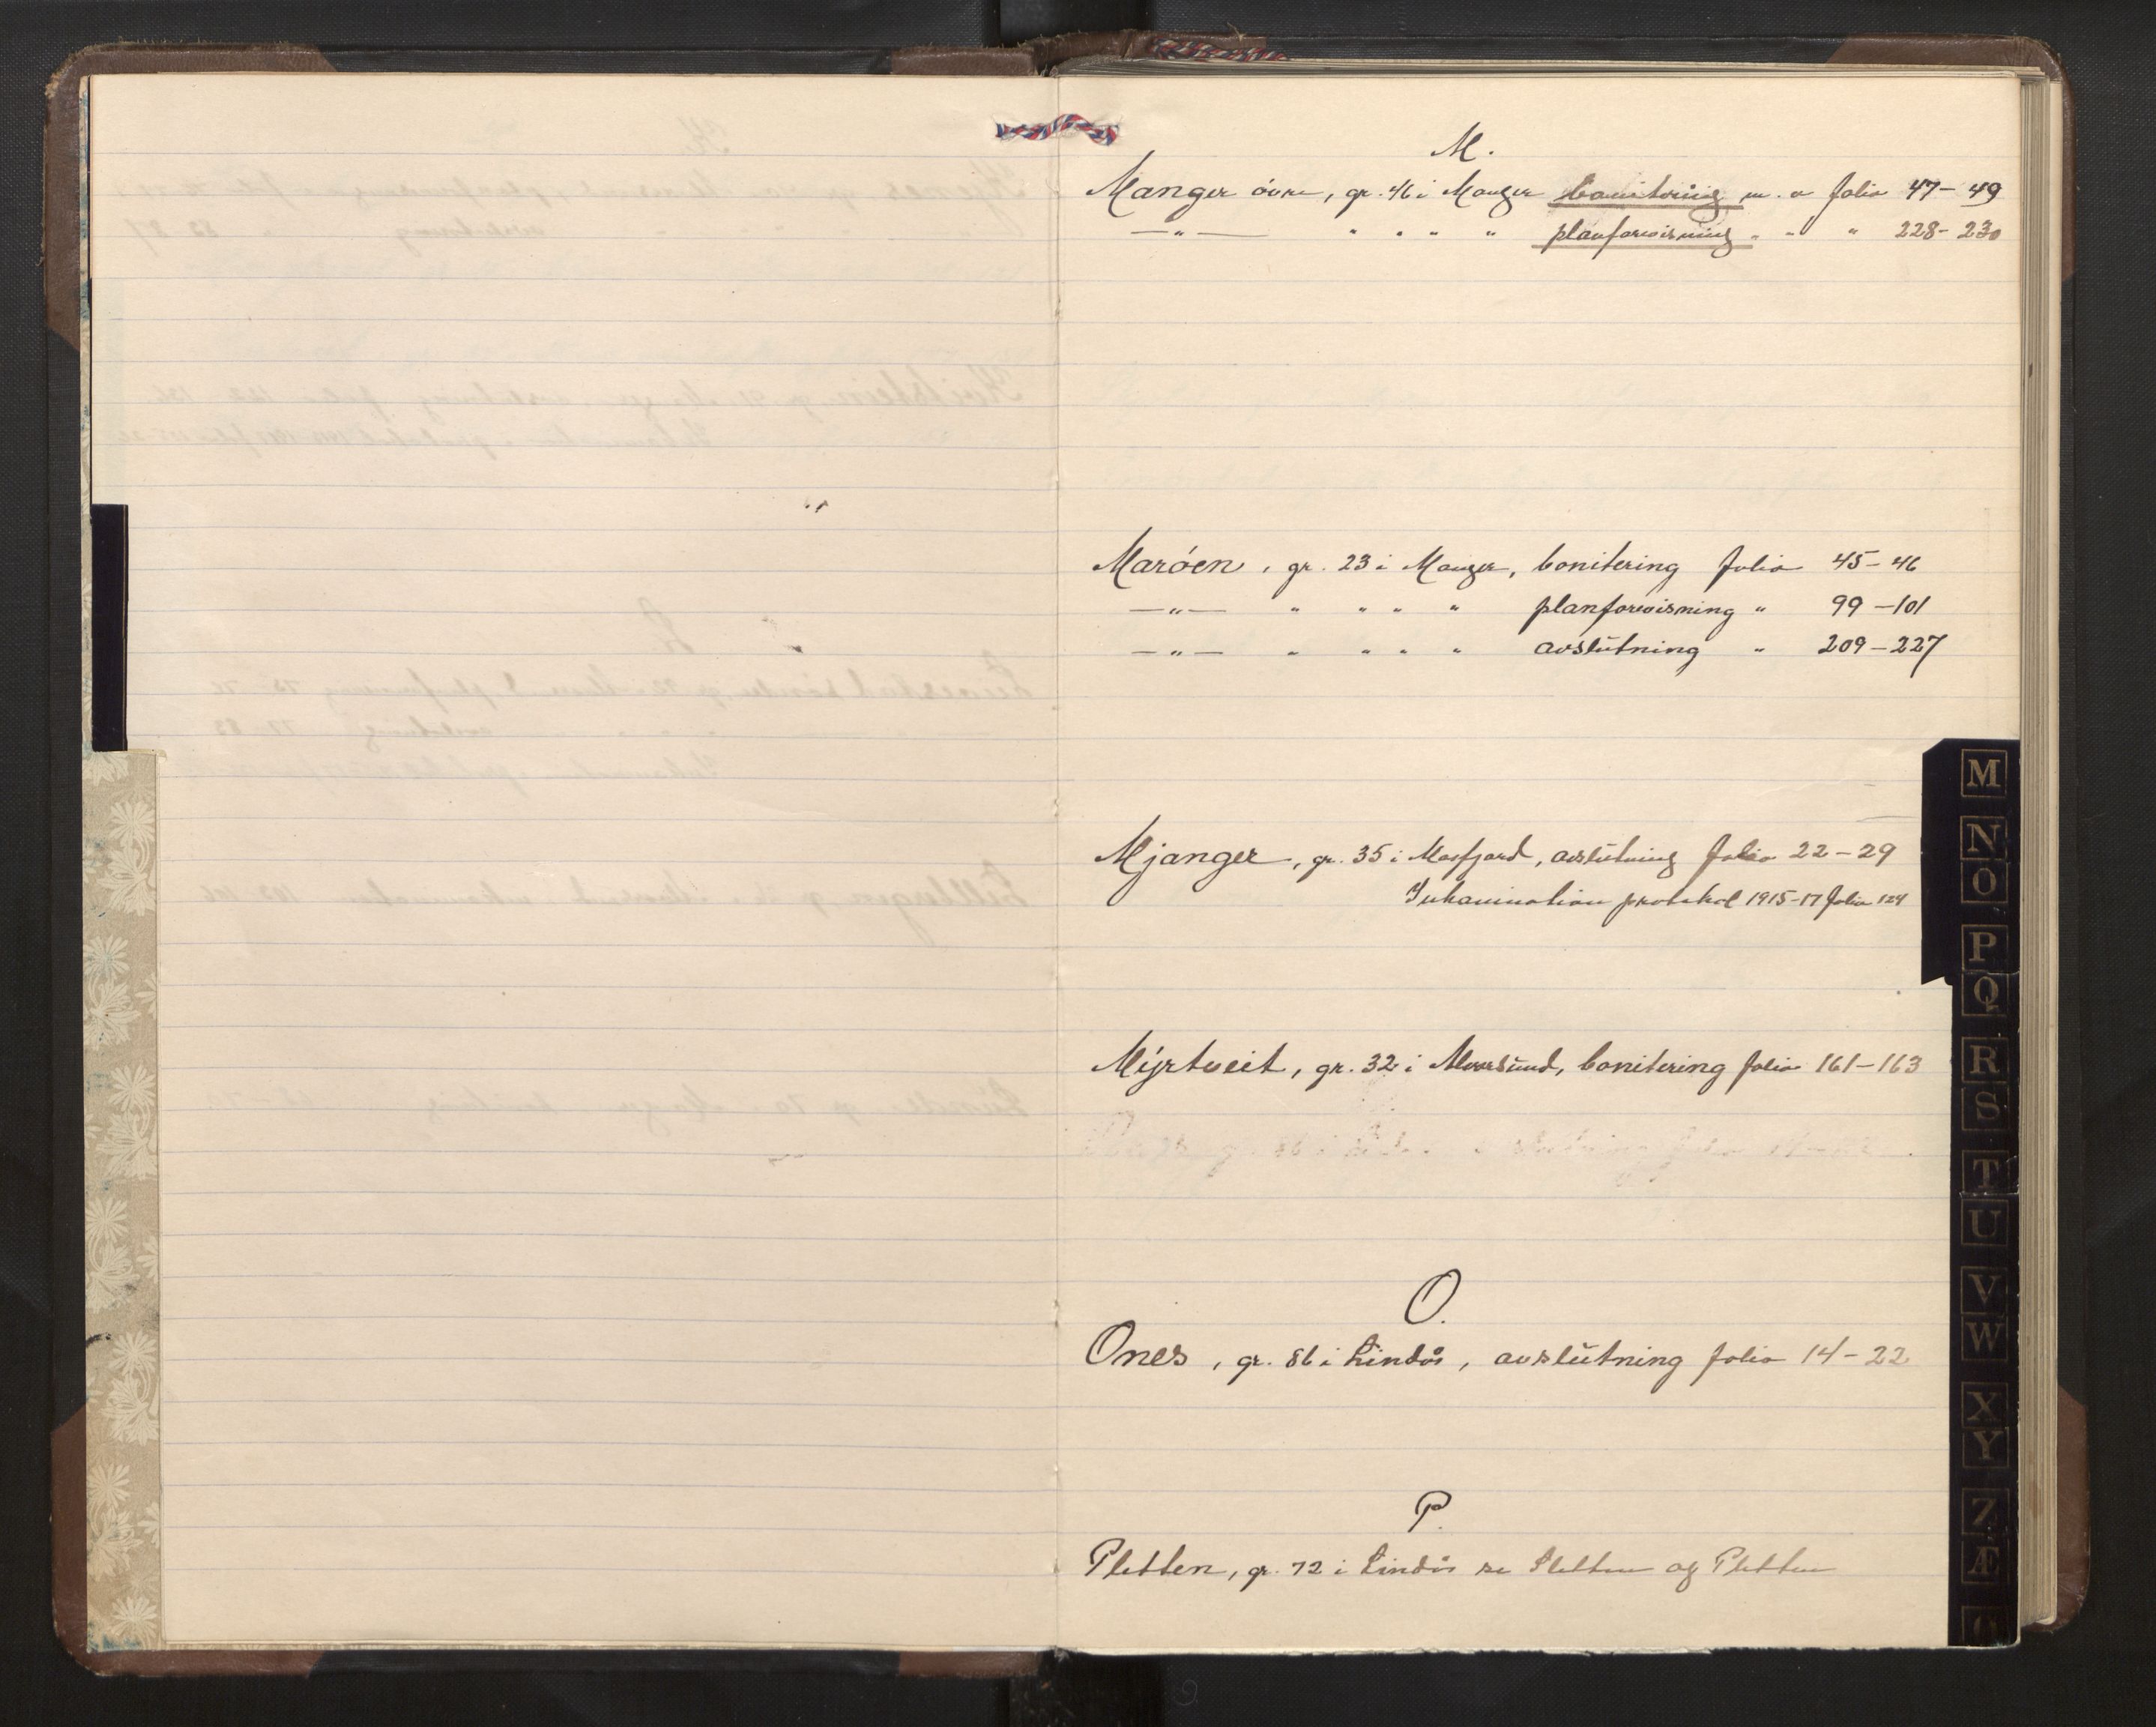 M.
Manger övre, gr. 46 i Manger bonitering m. v folio 47-49
—„— „ „ „ „ planforevisning „ „ „ 228-230
Maröen, gr. 23 i Manger, bonitering folio 45-46
—„— „ „ „ „ planforevisning „ 99-101
—„— „ „ „ „ avslutning „ 209-227
Mjanger, gr. 35 i Masfjord, avslutning folio 22-29
protokol 1915-17 folio 124
Myrtveit, gr. 32 i Alversund, bonitering folio 161-163
O.
Ones, gr. 86 i Lindås, avslutning folio 14-22
P.
Pletten, gr. 72 i Lindås se Sletten og Pletten
M
N
O
P
Q
R
S
T
U
V
W
X
Y
Z
Æ